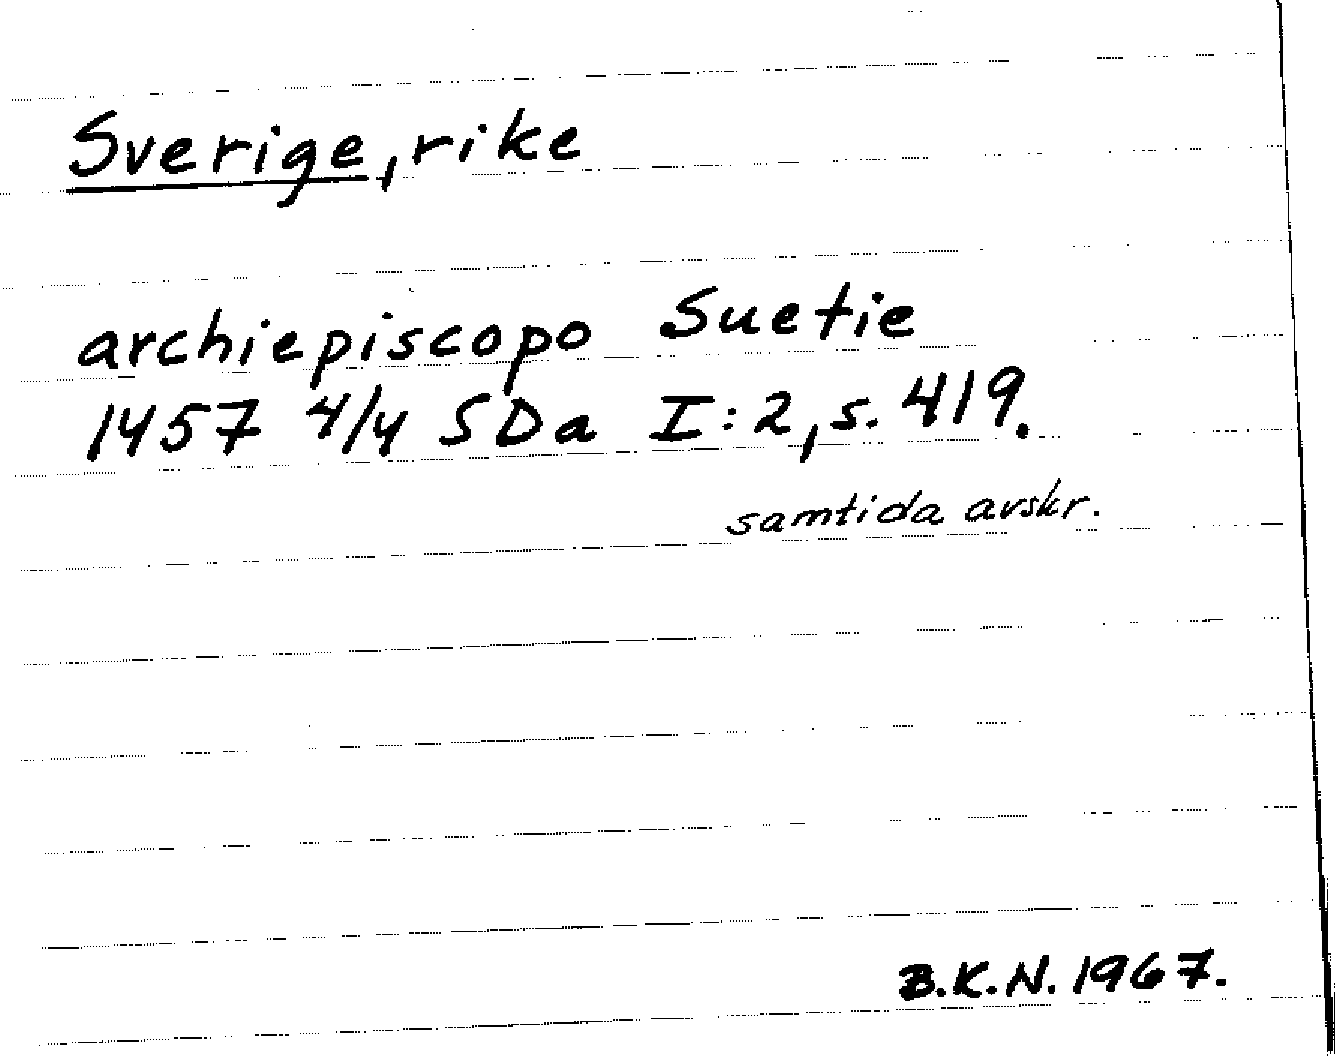 Sverige, rike
archiepiscopo Suetie
1457 4/4 SDa I:2, s. 419.
samtida avskr.
B.K.N. 1967.